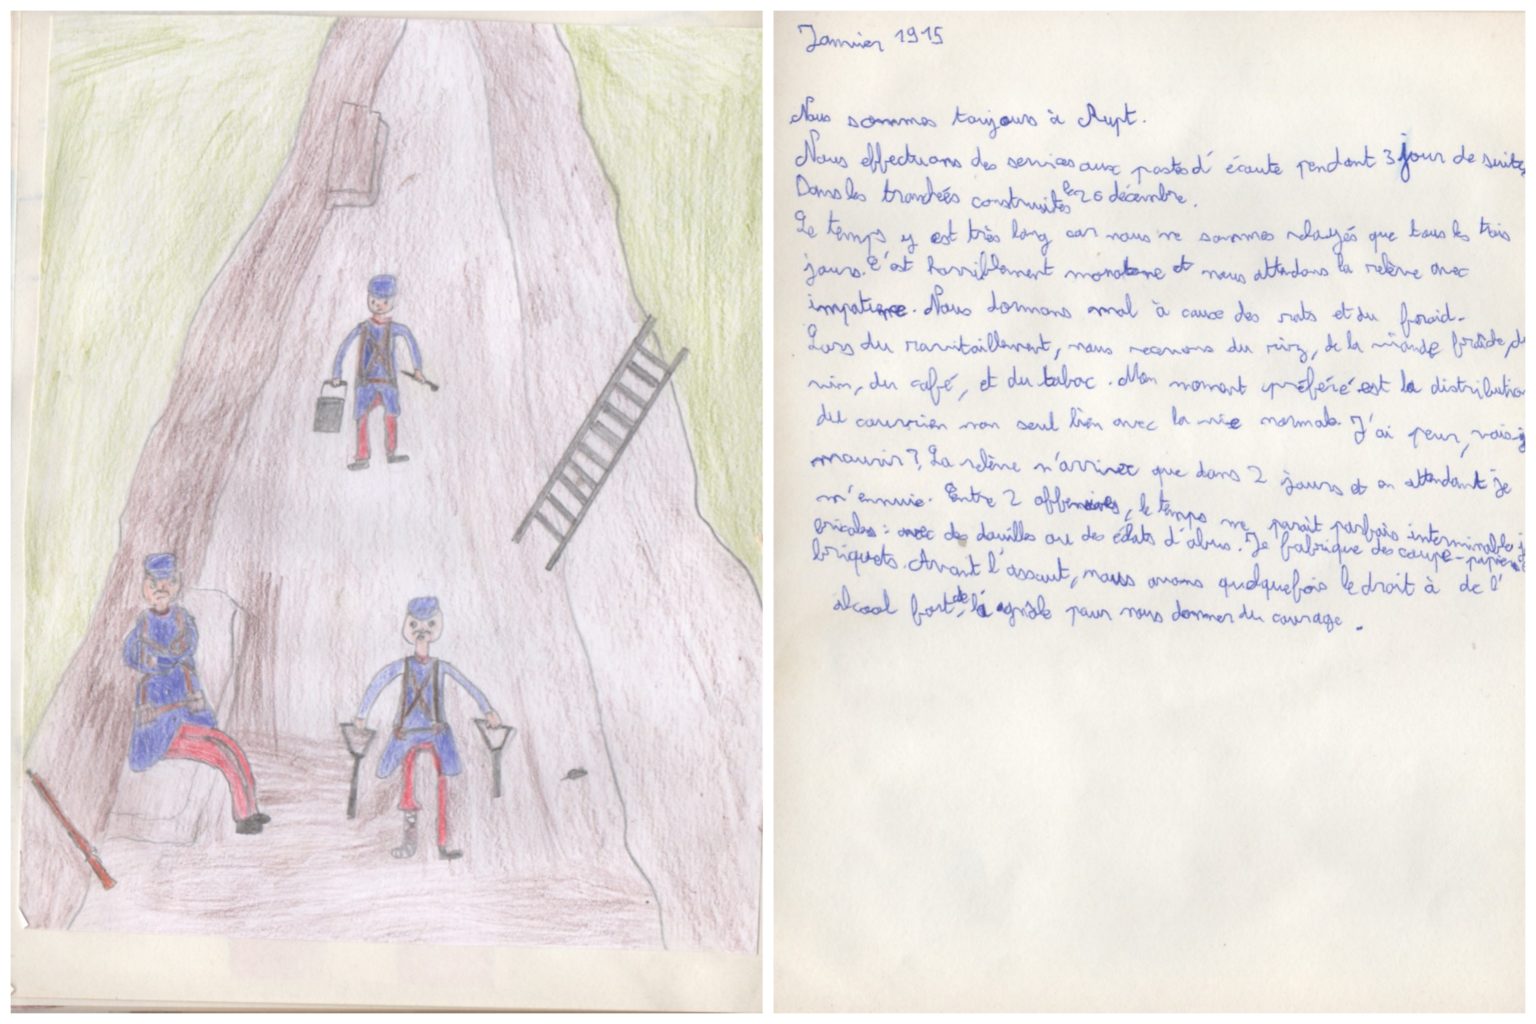 Janvier 1915
Nous sommes toujours à Rupt.
Nous effectuons des services aux postes d'écoute pendant 3 jour de suite
Dans les tranchées construites le 26 décembre.
Le temps y est très long car nous ne sommes relayés que tous les trois
jours. C'est horriblement monotone et nous attendons la relève avec
impatience. Nous dormons mal à cause des rats et du froid.
Lors du ravitaillement, nous recevons du riz, de la viande froide, du
vin, du café, et du tabac. Mon moment préféré est la distribution
du courrier mon seul lien avec la vie normale. J'ai peur, vais-j
mourir ? La relève n'arrive que dans 2 jours et en attendant je
m'ennuie. Entre 2 offensives, le temps me parait parfois interminable j
bricoles : avec des douilles ou des éclats d'obus. Je fabrique des coupe-papiers
briquets. Avant l'assaut, nous avons quelquefois le droit à de l'
alcool fort, de la gnôle pour nous donner du courage.